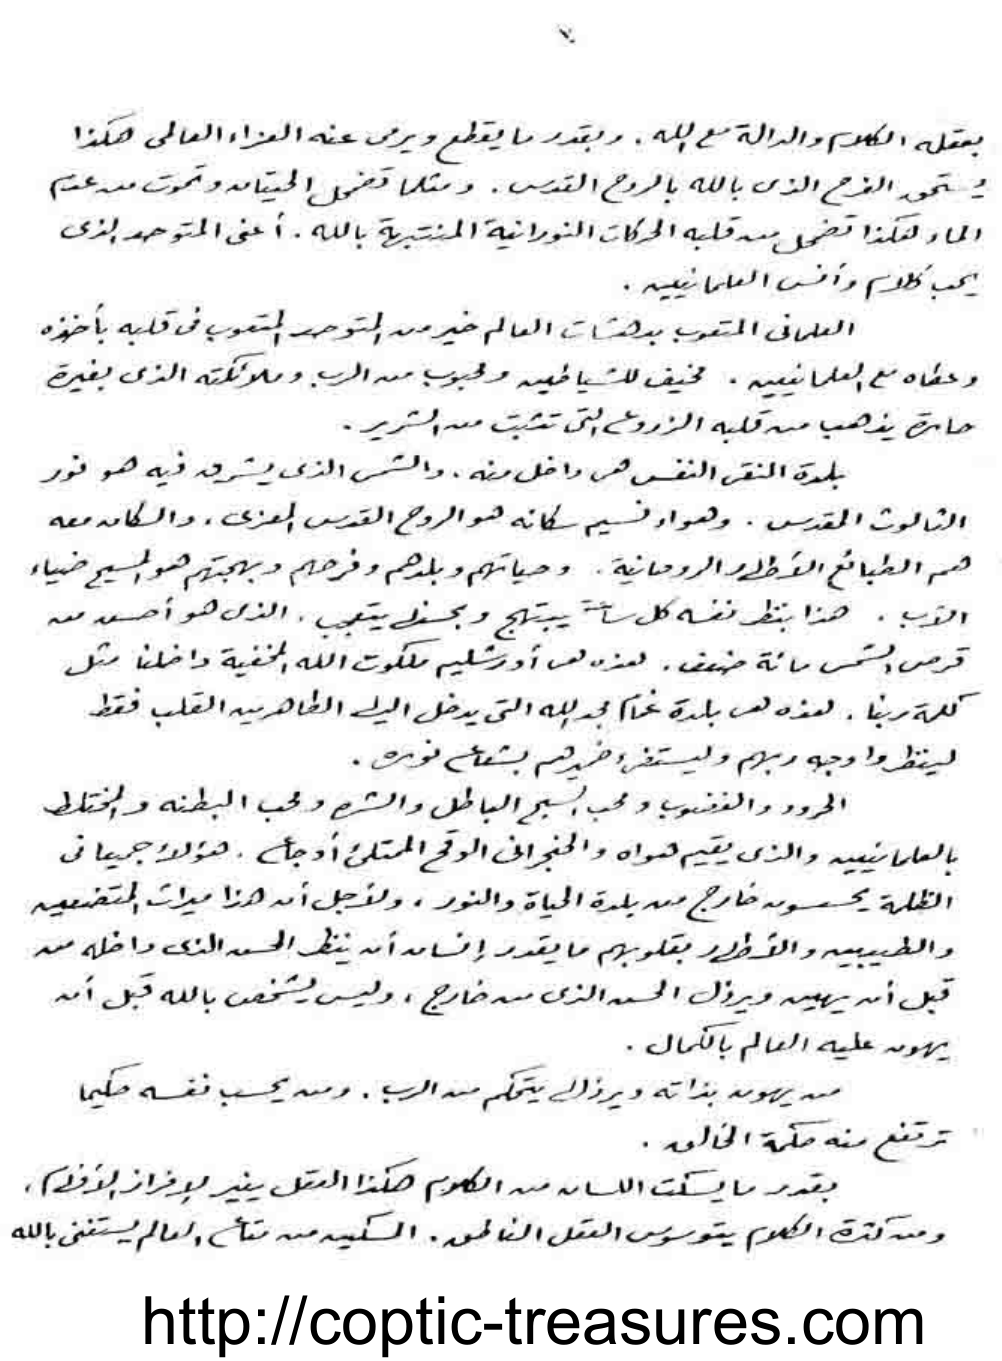 ٧٠
بعقله الكلام والدالة مع الله . وبقدر ما يقطع ويرمى عنه العزاء العالمى هكذا
يُستحق الفرح الذى بالله بالروح القدس . ومثلما تضمحل الحيتان وتموت من عدم
الماء لهكذا تضمحل من قلبه الحركات النورانية المنتبهة بالله . أعنى المتوحد الذى
يحب كلام وأنس العلمانيين .
العلمانى المتعوب بدهشات العالم خير من المتوحد المتعوب فى قلبه بأخذه
وعطاه مع العلمانيين . مخيف للشياطين ومحبوب من الرب وملائكته الذى بغيرة
حارة يذهب من قلبه الزروع التى تنبت من الشرير .
بلدة النقى النفس هى داخل منه . والشمس الذى يشرق فيه هو نور
الثالوث المقدس . وهواء نسيم سكانه هو الروح القدس المعزى ، والسكان معه
هم الطبائع الأطهار الروحانية . وحياتهم وبلدهم وفرحهم وبهجتهم هو المسيح ضياء
الآب . هذا بنظر نفسه كل ساعة يبتهج وبحسنها يتعجب . الذى هو أحسن من
قرص الشمس مائة ضعف . هذه هى أورشليم ملكوت الله المخفية داخلنا مثل
كلمة ربنا . هذه هى بلدة غمام مجد الله التى يدخل اليها الطاهرين القلب فقط
لينظروا وجه ربهم وليستضئ ضميرهم بشعاع نوره .
الحرود والغضوب ومحب السبح الباطل والشره ومحب البطنه والمختلط
بالعلمانيين والذى يقيم هواه والحنجرانى الوقح الممتلئ أوجاع . هؤلاء جميعا فى
الظلمة يحسسون خارج من بلدة الحياة والنور ، ولأجل أن هذا ميراث المتضعين
والطيبين والأطهار بقلوبهم ما يقدر إنسان أن ينظر الحسن الذى داخله من
قبل أن يهين ويرذل الحسن الذى من خارج ، وليس يشخص بالله قبل أن
يهون عليه العالم بالكمال .
من يهون بذاته ويرذلها يتحكم من الرب . ومن يحسب نفسه حكيما
ترتفع منه حكمة الخالق .
بقدر ما يسكت اللسان من الكلام هكذا العقل ينير لإفراز الأفهام ،
ومن كثرة الكلام يتوسوس العقل الناطق . المسكين من متاع العالم يستغنى بالله
http://coptic-treasures.com